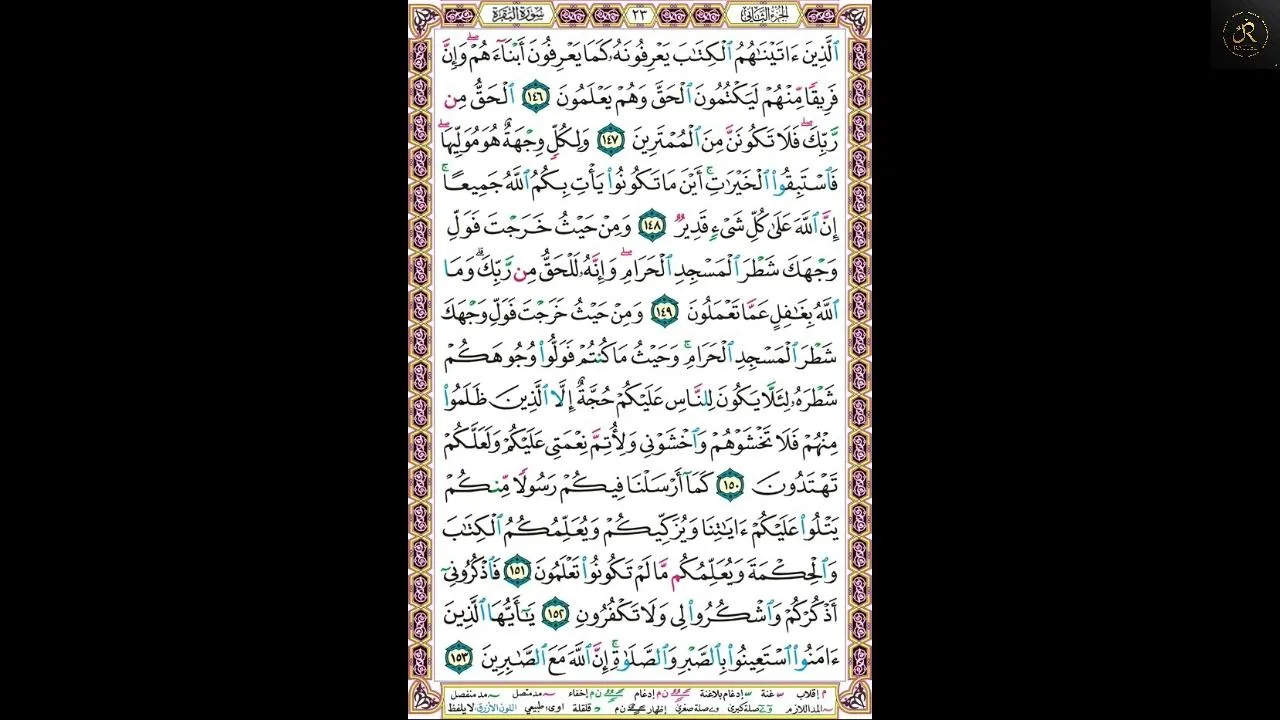 الجزء الثاني ٢٣ سورة البقرة
ٱلَّذِينَ ءَاتَيْنَٰهُمُ ٱلْكِتَٰبَ يَعْرِفُونَهُۥ كَمَا يَعْرِفُونَ أَبْنَآءَهُمْ ۖ وَإِنَّ
فَرِيقًا مِّنْهُمْ لَيَكْتُمُونَ ٱلْحَقَّ وَهُمْ يَعْلَمُونَ ١٤٦ ٱلْحَقُّ مِن
رَّبِّكَ ۖ فَلَا تَكُونَنَّ مِنَ ٱلْمُمْتَرِينَ ١٤٧ وَلِكُلٍّ وِجْهَةٌ هُوَ مُوَلِّيهَا ۖ
فَٱسْتَبِقُوا۟ ٱلْخَيْرَٰتِ ۚ أَيْنَ مَا تَكُونُوا۟ يَأْتِ بِكُمُ ٱللَّهُ جَمِيعًا ۚ
إِنَّ ٱللَّهَ عَلَىٰ كُلِّ شَىْءٍ قَدِيرٌ ١٤٨ وَمِنْ حَيْثُ خَرَجْتَ فَوَلِّ
وَجْهَكَ شَطْرَ ٱلْمَسْجِدِ ٱلْحَرَامِ ۖ وَإِنَّهُۥ لَلْحَقُّ مِن رَّبِّكَ ۗ وَمَا
ٱللَّهُ بِغَٰفِلٍ عَمَّا تَعْمَلُونَ ١٤٩ وَمِنْ حَيْثُ خَرَجْتَ فَوَلِّ وَجْهَكَ
شَطْرَ ٱلْمَسْجِدِ ٱلْحَرَامِ ۚ وَحَيْثُ مَا كُنتُمْ فَوَلُّوا۟ وُجُوهَكُمْ
شَطْرَهُۥ لِئَلَّا يَكُونَ لِلنَّاسِ عَلَيْكُمْ حُجَّةٌ إِلَّا ٱلَّذِينَ ظَلَمُوا۟
مِنْهُمْ فَلَا تَخْشَوْهُمْ وَٱخْشَوْنِى وَلِأُتِمَّ نِعْمَتِى عَلَيْكُمْ وَلَعَلَّكُمْ
تَهْتَدُونَ ١٥٠ كَمَآ أَرْسَلْنَا فِيكُمْ رَسُولًا مِّنكُمْ
يَتْلُوا۟ عَلَيْكُمْ ءَايَٰتِنَا وَيُزَكِّيكُمْ وَيُعَلِّمُكُمُ ٱلْكِتَٰبَ
وَٱلْحِكْمَةَ وَيُعَلِّمُكُم مَّا لَمْ تَكُونُوا۟ تَعْلَمُونَ ١٥١ فَٱذْكُرُونِىٓ
أَذْكُرْكُمْ وَٱشْكُرُوا۟ لِى وَلَا تَكْفُرُونِ ١٥٢ يَٰٓأَيُّهَا ٱلَّذِينَ
ءَامَنُوا۟ ٱسْتَعِينُوا۟ بِٱلصَّبْرِ وَٱلصَّلَوٰةِ ۚ إِنَّ ٱللَّهَ مَعَ ٱلصَّٰبِرِينَ ١٥٣
م إقلاب غنة إدغام بلاغنة ن م إدغام ن م إخفاء مد متصل مد منفصل
المد اللازم صلة كبرى صلة صغرى إظهار ن م قلقلة اوى: طبيعي اللون الأزرق: لا يلفظ